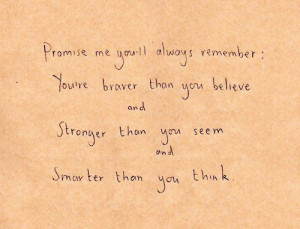 Promise me you'll always remember:
You're braver than you believe
and
Stronger than you seem
and
Smarter than you think.